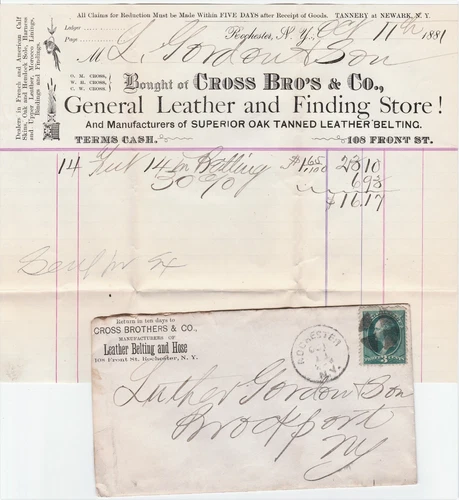 All Claims for Reduction Must be Made Within FIVE DAYS after Receipt of Goods. TANNERY at NEWARK, N. Y.
Ledger
Page
Rochester, N. Y., Oct 11th 1881
M L. Gordon & Son
Dealers in French and American Calf
Skins, Oak and Hemlock Sole, Harness
and Upper Leather, Morocco Linings,
Bindings and Findings.
O. M. CROSS,
W. H. CROSS,
C. W. CROSS,
Bought of CROSS BRO'S & CO.,
General Leather and Finding Store!
And Manufacturers of SUPERIOR OAK TANNED LEATHER BELTING.
TERMS CASH.
108 FRONT ST.
14 Feet 14 in Belting $1.65 23.10
30% 6.93
$16.17
Sent by Ex
Return in ten days to
CROSS BROTHERS & CO.,
MANUFACTURERS OF
Leather Belting and Hose
108 Front St. Rochester, N. Y.
ROCHESTER
OCT
11
N.Y.
3
Luther Gordon & Son
Brockport
NY